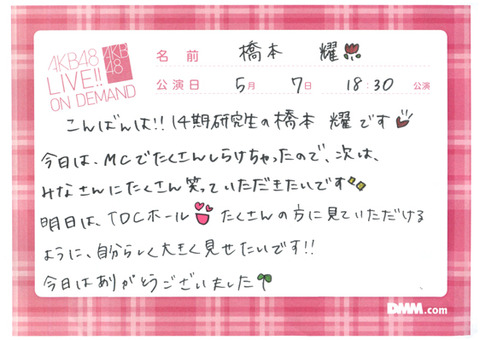 AKB48
LIVE!!
ON DEMAND
AKB
48
名前 橋本 耀
公演日 5月 7日 18:30 公演
こんばんは!!14期研究生の橋本 耀です
今日は、MCでたくさんしらけちゃったので、次は、
みなさんにたくさん笑っていただきたいです
明日は、TDCホール たくさんの方に見ていただける
ように、自分らしく大きく見せたいです!!
今日はありがとうございました
DMM.com